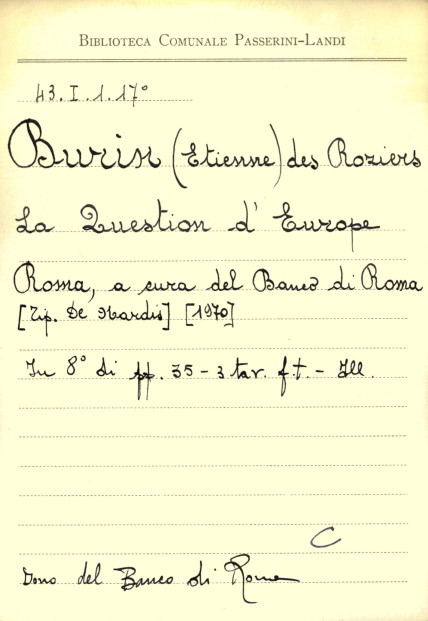 BIBLIOTECA COMUNALE PASSERINI-LANDI
43.I.1.17°
Burin (Etienne) des Roziers
La Question d' Europe
Roma, a cura del Banco di Roma
[Tip. De Nardis] [1970]
In 8° di pp. 35 - 3 tav. f.t. - Ill.
C
Dono del Banco di Roma